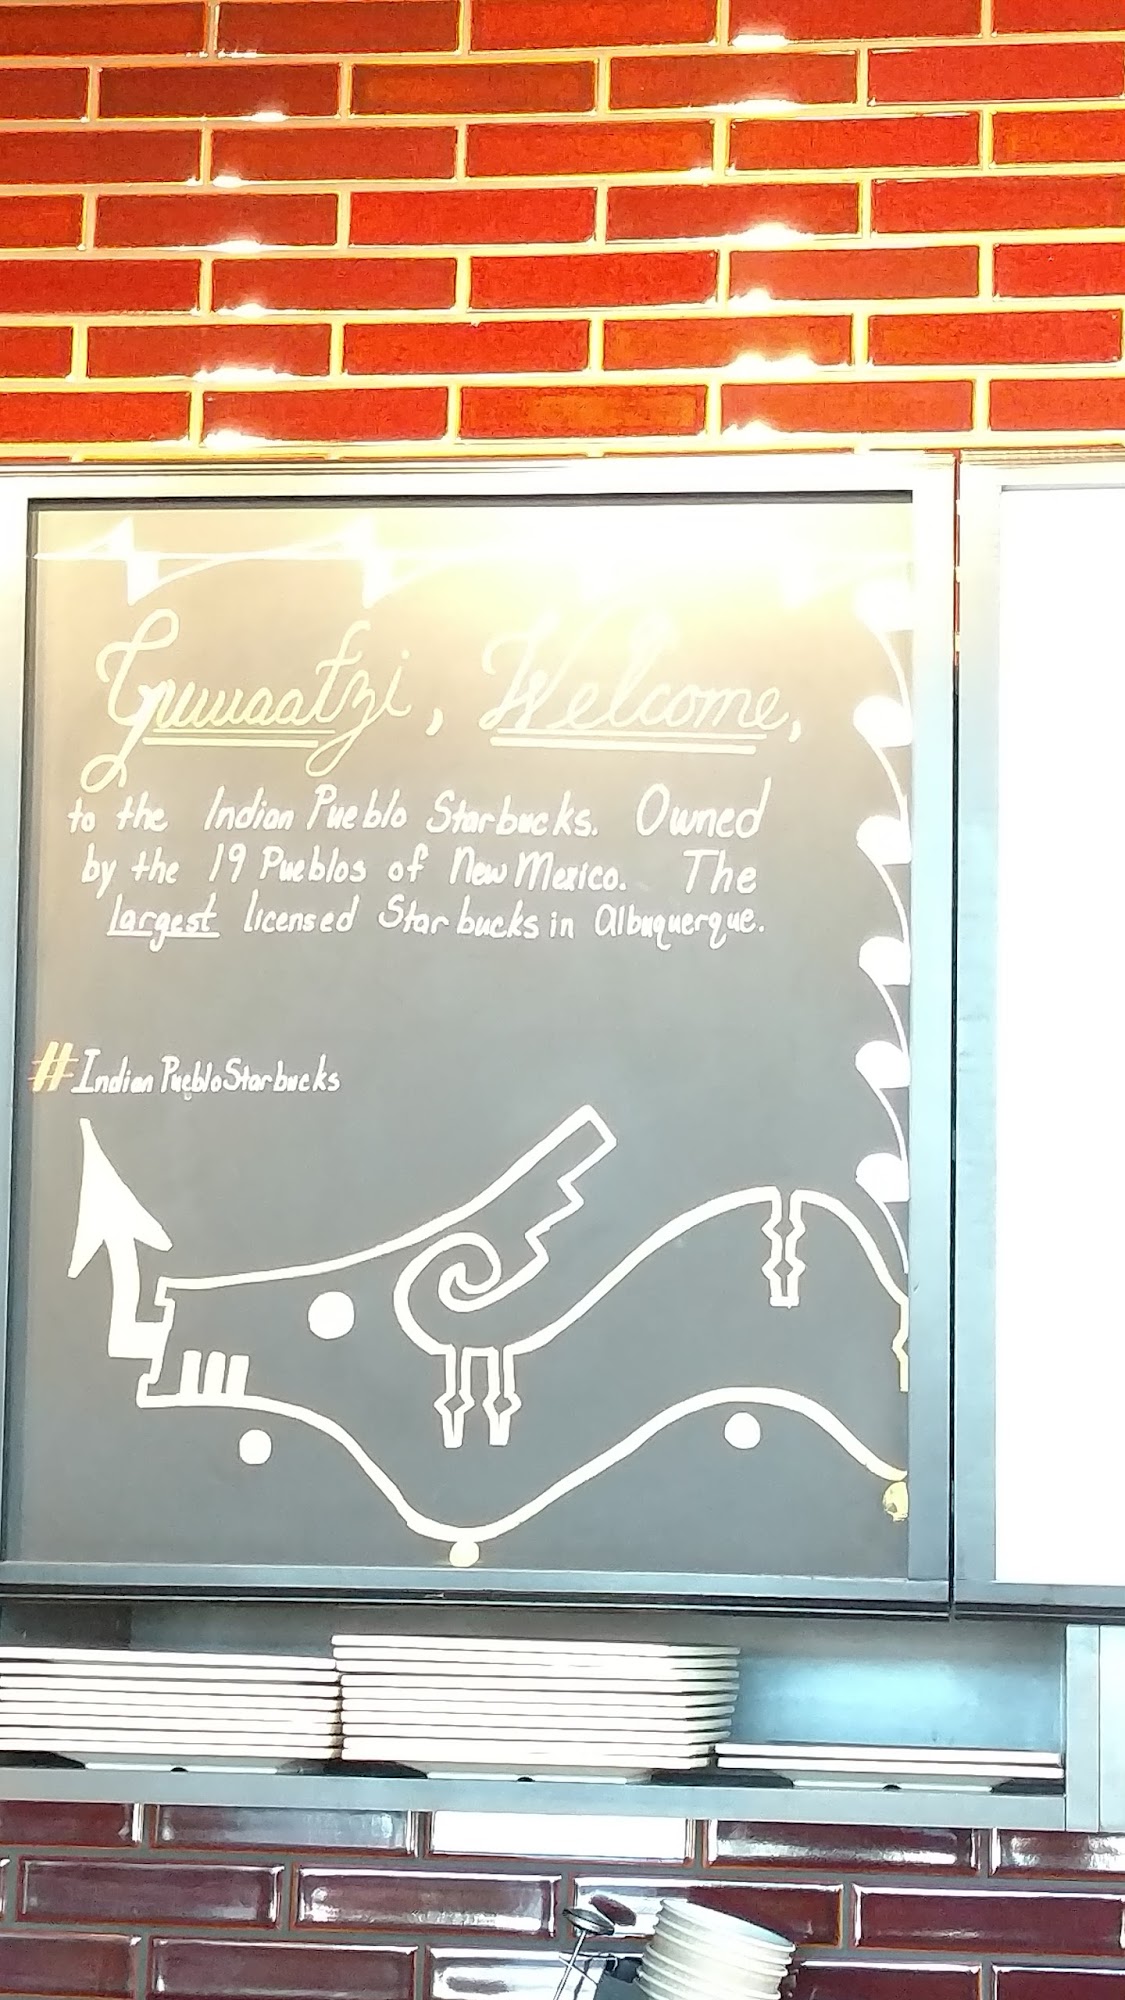 Guwaatzi, Welcome,
to the Indian Pueblo Starbucks. Owned
by the 19 Pueblos of New Mexico. The
largest licensed Starbucks in Albuquerque.
#IndianPuebloStarbucks